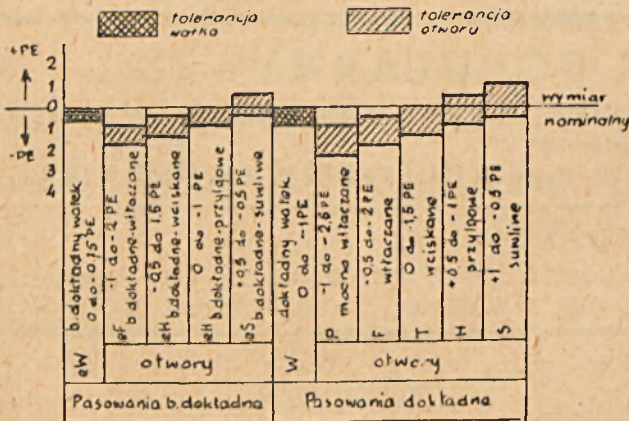 tolerancja
wałka
tolerancja
otworu
+PE
-PE
2
1
0
1
2
3
4
wymiar
nominalny
b.dokładny wałek
0 do -0,75 PE
eW
-1 do -2 PE
b dokładne-wtłaczane
eF
-0,5 do 1,5 PE
b.dokładne-wciskane
0 do -1 PE
b.dokładne-przylgowe
eH
+0,5 do -0,5 PE
b dokładne-suwliwe
eS
dokładny wałek
0 do -1 PE
W
-1 do -2,5 PE
mocno wtłaczane
P
-0,5 do -2 PE
wtłaczane
F
0 do -1,5 PE
wciskane
T
+0,5 do -1 PE
przylgowe
H
+1 do -0,5 PE
suwliwe
S
otwory
otwory
Pasowania b.dokładne
Pasowania dokładne